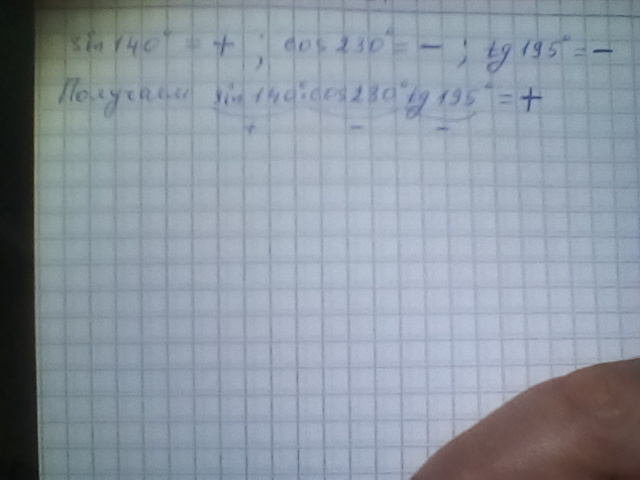 sin 140° = + ; cos 230° = − ; tg 195° = −
Получаем sin 140°·cos 230° tg 195° = +
+ − −